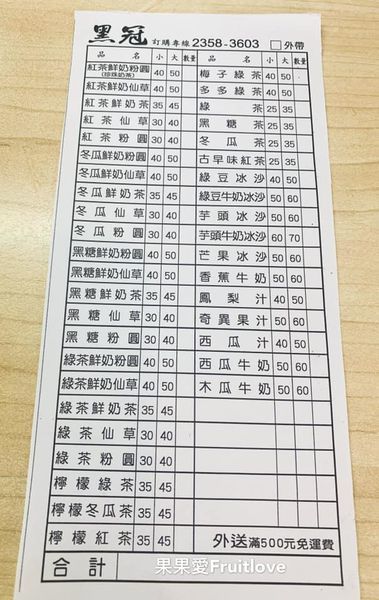 黑冠 訂購專線 2358-3603 □外帶
品名 小 大 數量 品名 小 大 數量
紅茶鮮奶粉圓(珍珠奶茶) 40 50 梅子綠茶 40 50
紅茶鮮奶仙草 40 50 多多綠茶 40 50
紅茶鮮奶茶 35 45 綠茶 25 35
紅茶仙草 30 40 黑糖茶 25 35
紅茶粉圓 30 40 冬瓜茶 25 35
冬瓜鮮奶粉圓 40 50 古早味紅茶 25 35
冬瓜鮮奶仙草 40 50 綠豆冰沙 40 50
冬瓜鮮奶茶 35 45 綠豆牛奶冰沙 50 60
冬瓜仙草 30 40 芋頭冰沙 50 60
冬瓜粉圓 30 40 芋頭牛奶冰沙 60 70
黑糖鮮奶粉圓 40 50 芒果冰沙 50 60
黑糖鮮奶仙草 40 50 香蕉牛奶 50 60
黑糖鮮奶茶 35 45 鳳梨汁 40 50
黑糖仙草 30 40 奇異果汁 50 60
黑糖粉圓 30 40 西瓜汁 40 50
綠茶鮮奶粉圓 40 50 西瓜牛奶 50 60
綠茶鮮奶仙草 40 50 木瓜牛奶 50 60
綠茶鮮奶茶 35 45
綠茶仙草 30 40
綠茶粉圓 30 40
檸檬綠茶 35 45
檸檬冬瓜茶 35 45
檸檬紅茶 35 45 外送滿500元免運費
合計
果果愛Fruitlove